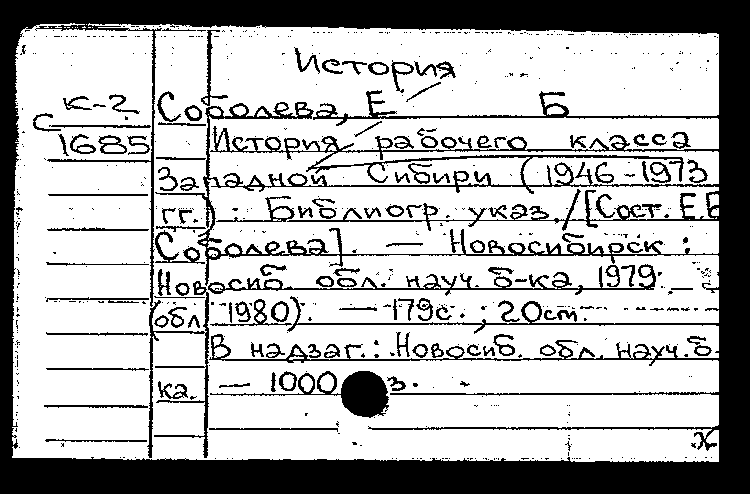 История
К-2 Соболева, Е Б
С
1685 История рабочего класса
Западной Сибири (1946-1973
гг.) : Библиогр. указ. / [Сост. Е.Б
Соболева]. — Новосибирск :
Новосиб. обл. науч. б-ка, 1979
(обл. 1980). — 179с. ; 20см.
В надзаг.: Новосиб. обл. науч. б-
ка. — 1000 з.